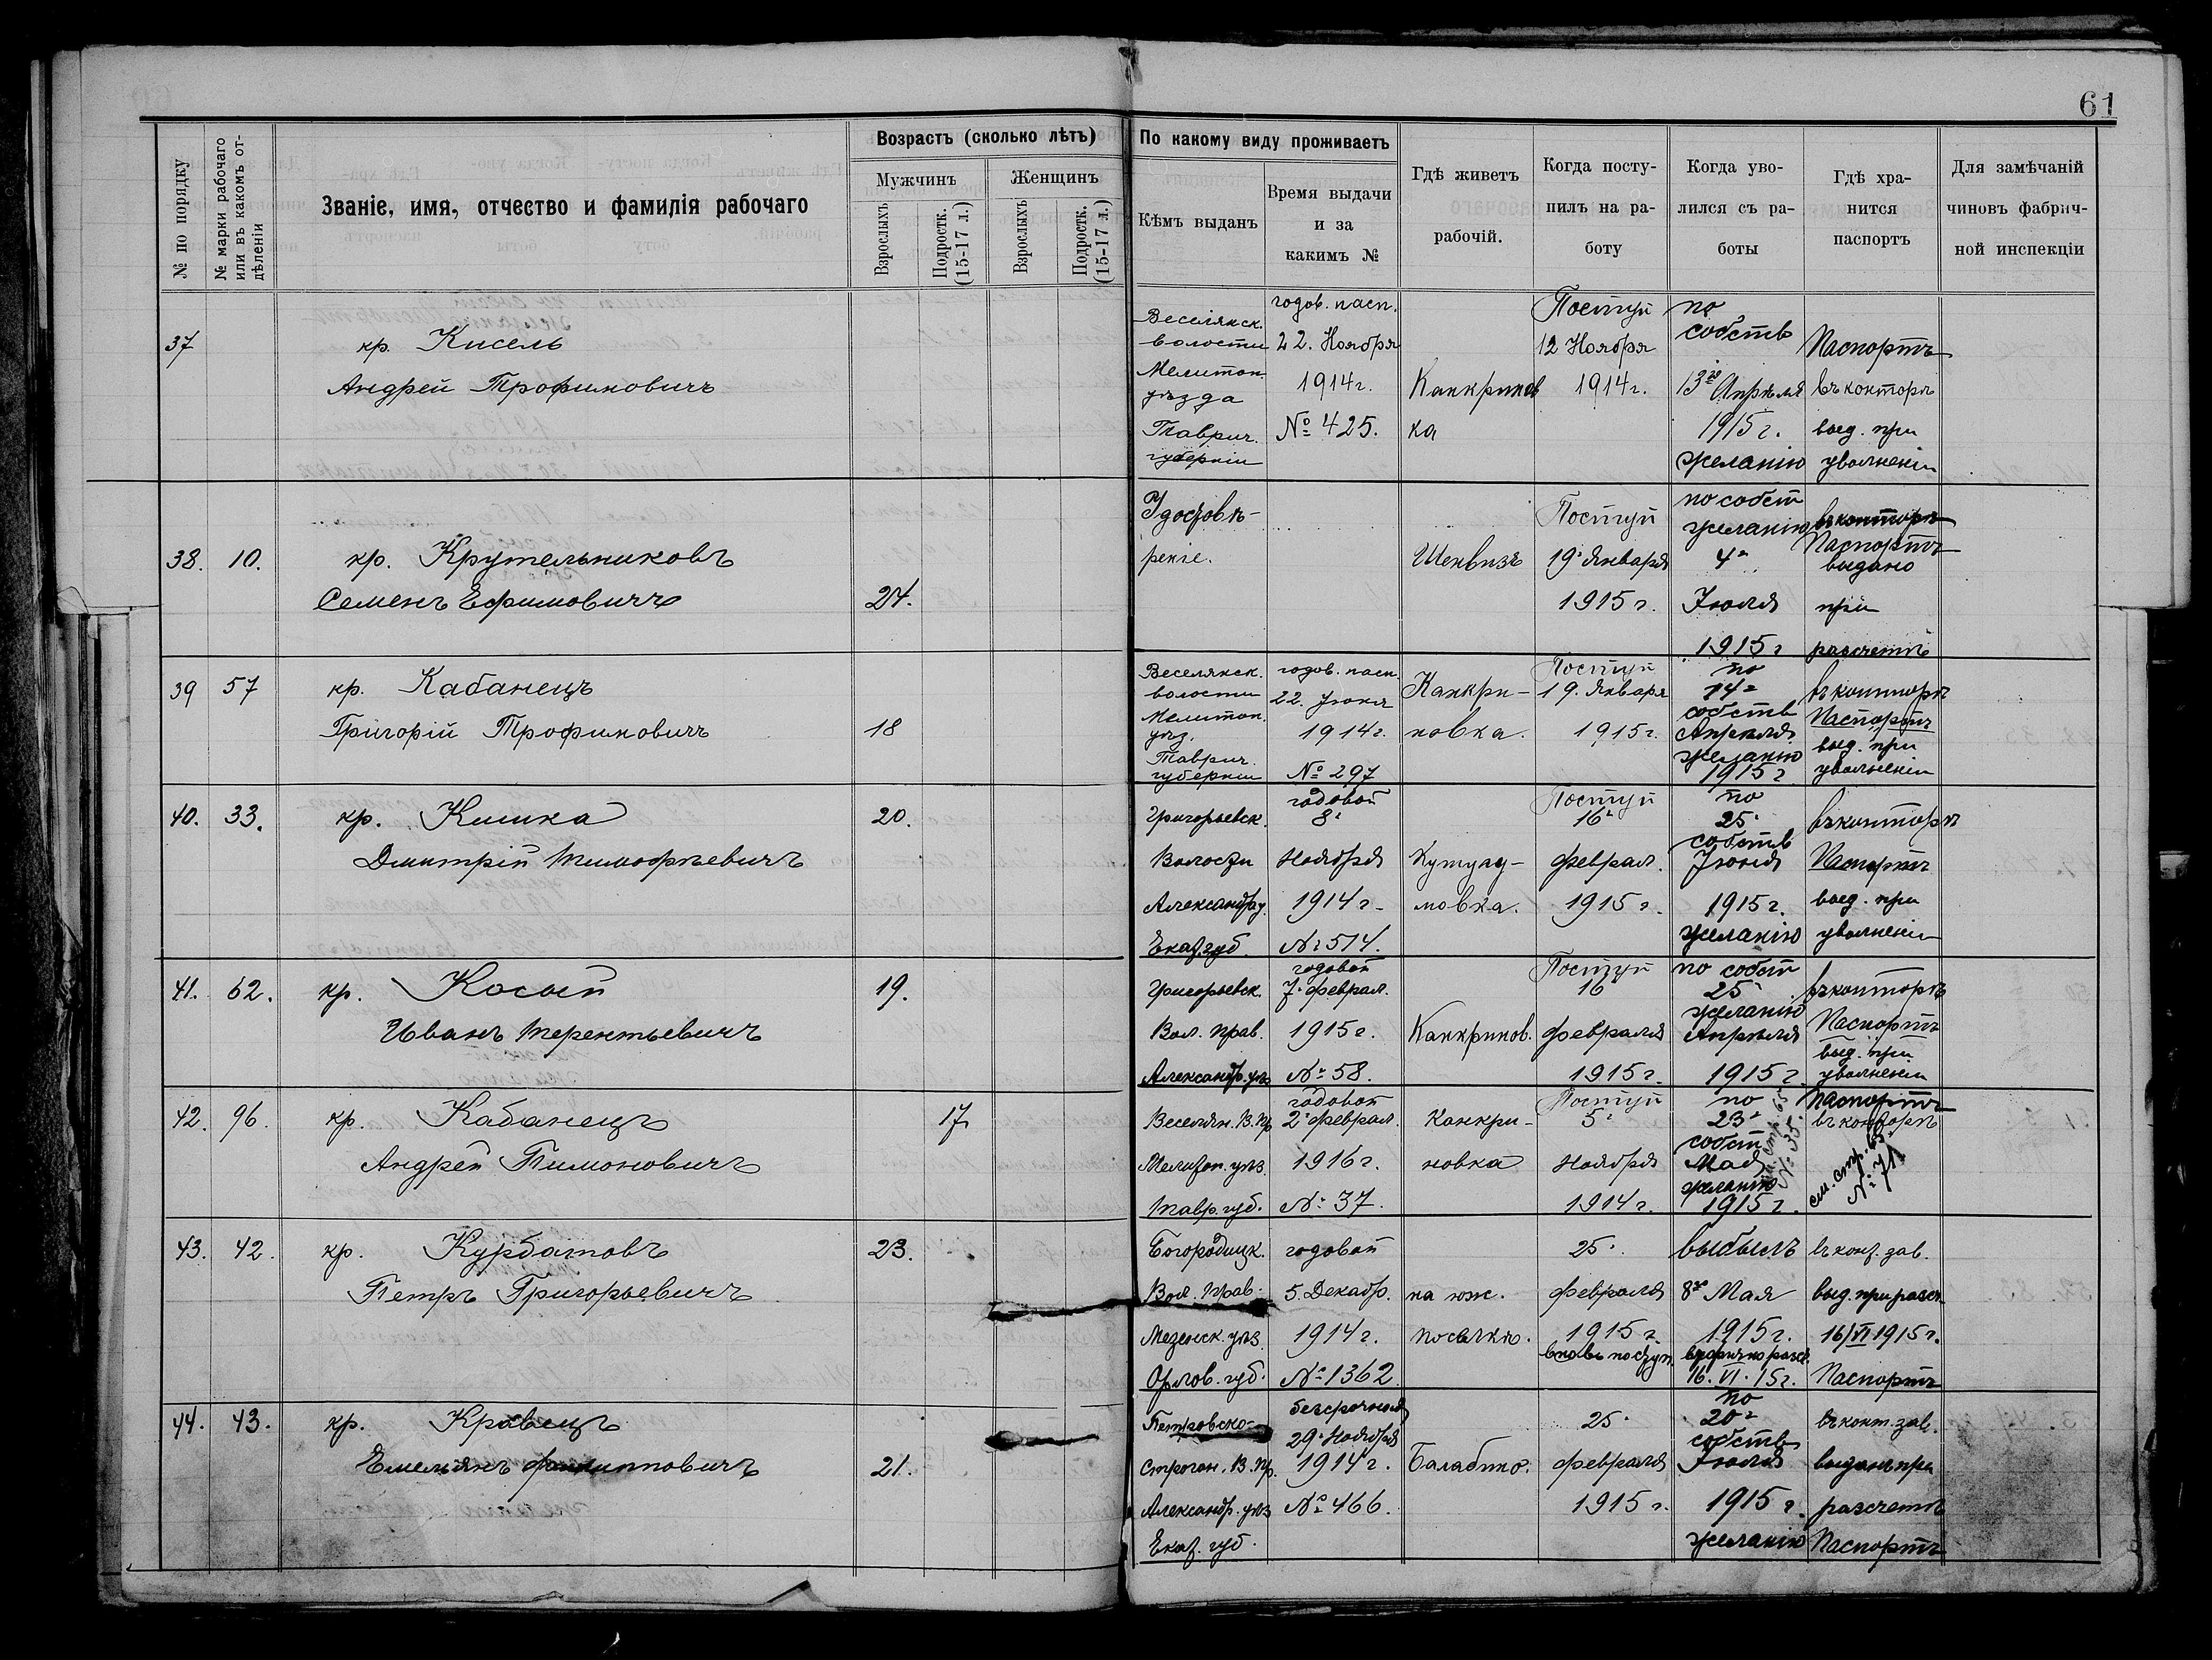 61
№ по порядку
№ марки рабочаго или въ какомъ отдѣленіи
Званіе, имя, отчество и фамилія рабочаго
Возрастъ (сколько лѣтъ)
Мужчинъ
Взрослыхъ
Подростк. (15-17 л.)
Женщинъ
Взрослыхъ
Подростк. (15-17 л.)
По какому виду проживаетъ
Кѣмъ выданъ
Время выдачи
и за
какимъ №
Гдѣ живетъ
рабочій.
Когда посту-
пилъ на ра-
боту
Когда уво-
лился съ ра-
боты
Гдѣ хра-
нится
паспортъ
Для замѣчаній
чиновъ фабрич-
ной инспекціи
37
кр. Кисель
Андрей Трофимовичъ
Веселянск.
волости
Мелитоп.
уѣзда
Таврич.
губерніи
годов. пасп.
22. Ноября
1914 г.
№ 425.
Канкринов
ка
Поступ
12 Ноября
1914 г.
по
собств
13го Апрѣля
1915 г.
желанію
Паспортъ
въ конторѣ
выд. при
уволненіи
38. 10.
кр. Крутельниковъ
Семенъ Ефимовичъ
24.
Удостовѣ-
реніе.
Шенвизъ
Поступ
19 Января
1915 г.
по собст
желанію
4
Іюля
1915 г
въ конторѣ
Паспортъ
выдано
при
разсчетѣ
39 57
кр. Кабанецъ
Григорій Трофимовичъ
18
Веселянск.
волости
Мелитоп.
уѣз.
Таврич.
губерніи
годов. пасп.
22. Іюня
1914 г.
№ 297
Канкри-
новка.
Поступ
19. Января
1915 г.
по
14
собств
Апрѣля
желанію
1915 г
въ конторѣ
Паспортъ
выд. при
увольненіи
40. 33.
кр. Кишка
Дмитрій Тимофѣевичъ
20.
Григорьевск.
Волости
Александр. у.
Екат. губ.
годовой
8
Ноября
1914 г.
№ 514.
Кушугу-
мовка.
Поступ
16
феврал.
1915 г.
по
25
собств
Іюня
1915 г.
желанію
въ конторѣ
Паспортъ
выд. при
уволненіи
41. 62.
кр. Косый
Иванъ Терентьевичъ
19.
Григорьевск.
Вол. прав.
Александр. уѣз
годовой
7 феврал.
1915 г.
№ 58.
Канкринов.
Поступ
16
февраля
1915 г.
по собст
25
желанію
Апрѣля
1915 г.
въ конторѣ
Паспортъ
выд. при
уволненіи
42. 96.
кр. Кабанецъ
Андрей Пимоновичъ
17
Веселян. В. пр
Мелитоп. уѣз.
Тавр. губ.
годовой
2 феврал.
1916 г.
№ 37.
Канкри-
новка
Поступ
5
Ноября
1914 г.
по
23
собст
Мая
желанію
1915 г.
см. стр. 65.
№ 35.
Паспортъ
въ конторѣ
см. стр. 65.
№ 71
43. 42.
кр. Курбатовъ
Петръ Григорьевичъ
23.
Богородицк.
Вол. Прав.
Орлов. губ.
годовой
5. Декабр.
1914 г.
№ 1362
на юж.
поселкѣ.
25
февраля
1915 г.
вновь поступ.
выбылъ
8го Мая
1915 г.
вторично разсч.
16. VI. 15 г.
въ конт. зав.
выд. при разсч
16/VI 1915 г.
Паспортъ
44. 43.
кр. Кравецъ
Емельянъ Филипповичъ
21.
Петровско-
строган. В. Пр.
Александр. уѣз
Екат. губ.
безсрочный
29 Ноября
1914 г.
№ 466.
Балабино.
25
февраля
1915 г.
по
20
собств
Іюля
1915 г.
желанію
въ конт. зав.
выданъ при
разсчетѣ
Паспортъ